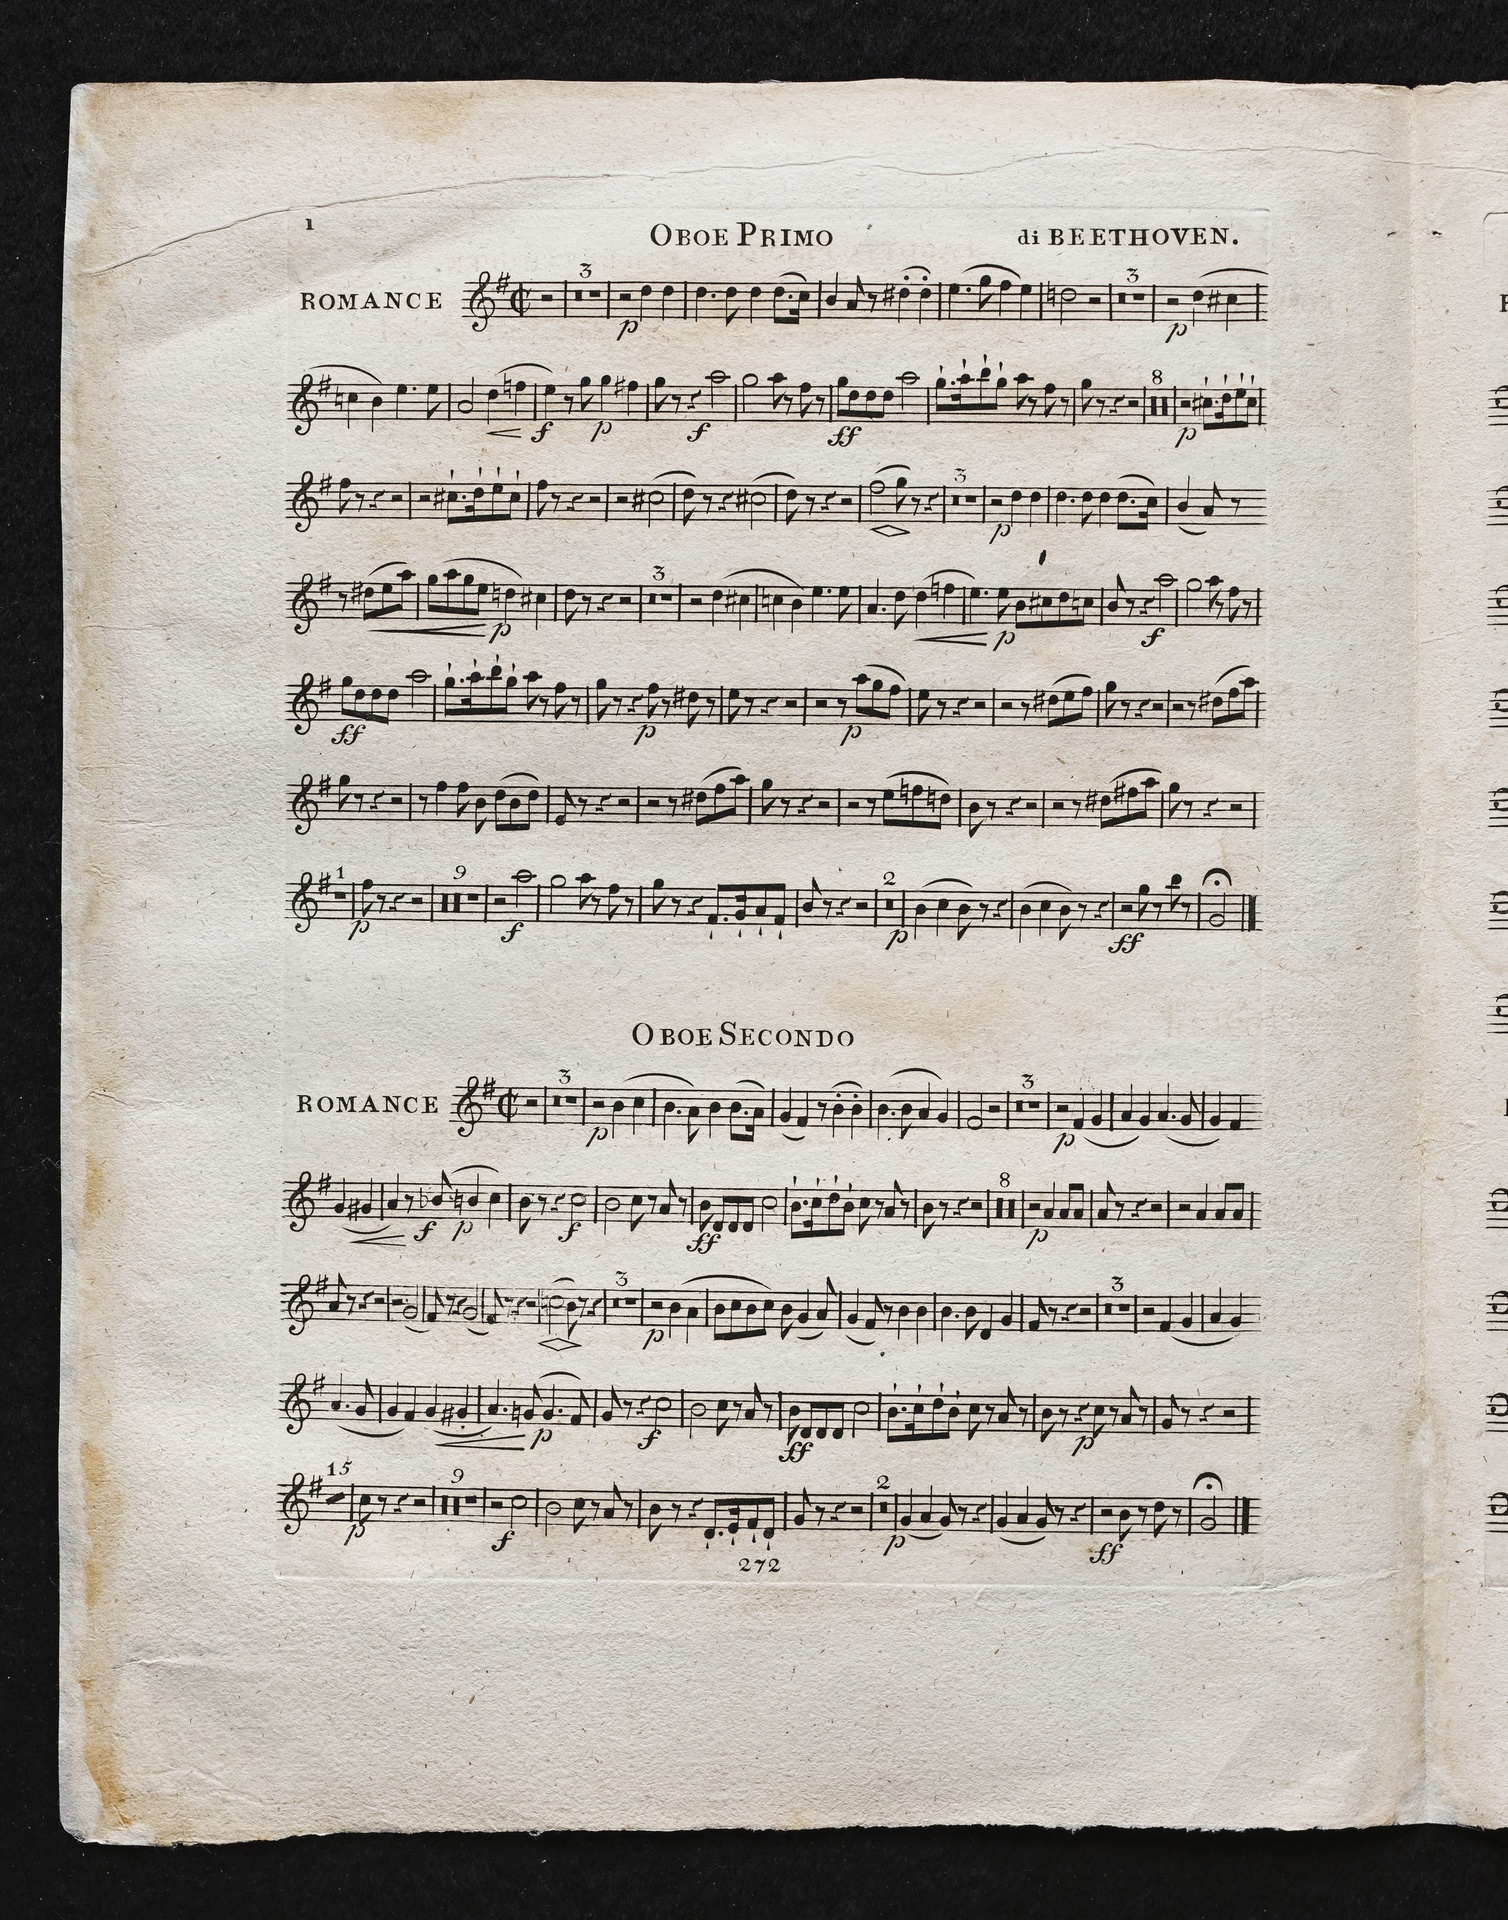 1
OBOE PRIMO
di BEETHOVEN.
ROMANCE
3
3
p
p
8
f
p
f
ff
p
3
p
3
p
p
f
ff
p
p
1
9
2
p
f
p
ff
OBOE SECONDO
ROMANCE
3
3
p
p
8
f
p
f
ff
p
3
3
p
p
f
ff
p
15
9
2
p
f
p
ff
272